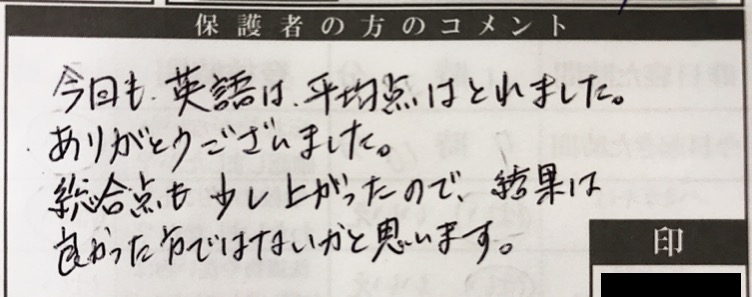 保護者の方のコメント
今回も、英語は、平均点はとれました。
ありがとうございました。
総合点も少し上がったので、結果は
良かった方ではないかと思います。
印